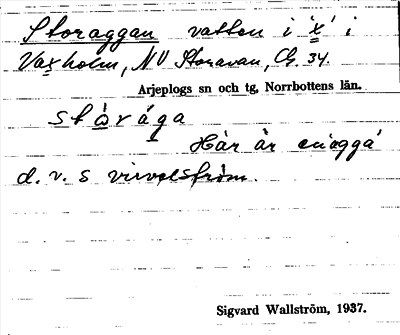 Storaggan vatten i "x" i
Vaxholm, NV Storavan, C9. 34.
Arjeplogs sn och tg, Norrbottens län.
stàrága
Här är
d. v. s virvelström.
Sigvard Wallström, 1937.